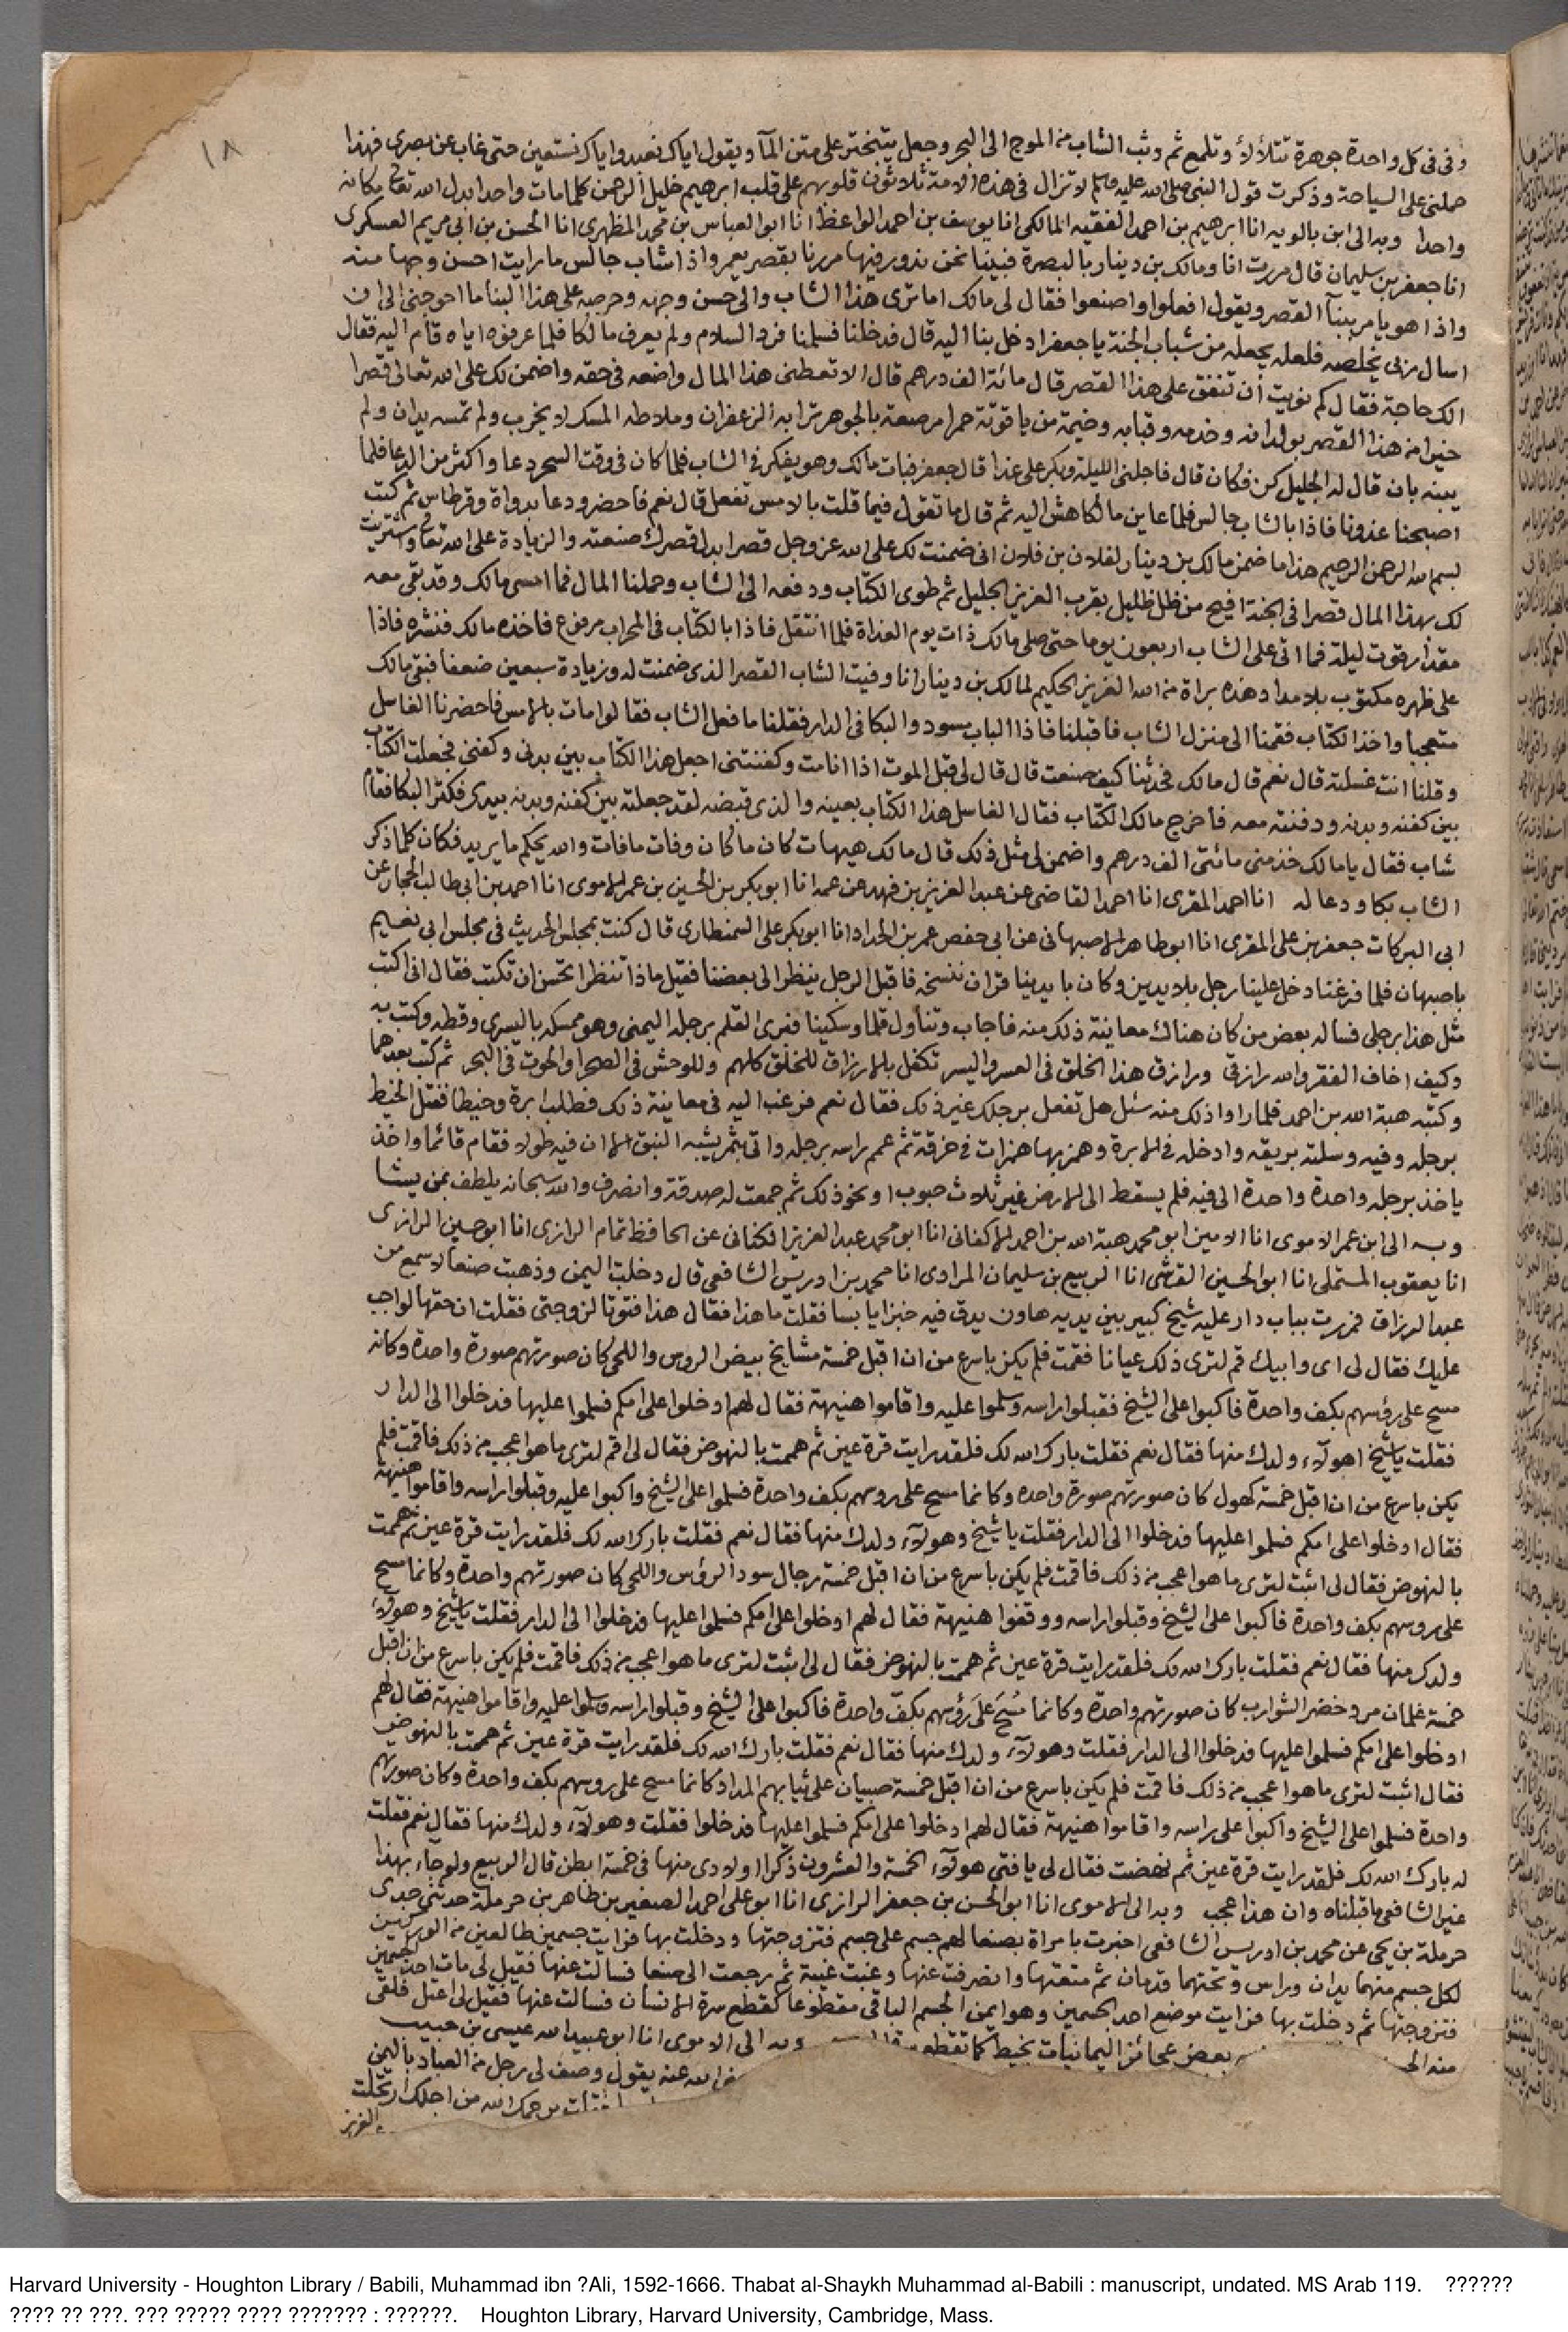 ١٨
وفى فى كل واحدة جوهرة تتلألأ وتلمع ثم وثب الشاب من الموج الى البحر وجعل يتبختر على متن المآ ويقول اياك نعبد واياك نستعين حتى غاب عن بصرى فهذا
حملنى على السياحة وذكرت قول النبى صلى الله عليه وسلم لا تزال فى هذه الامة ثلاثون قلوبهم على قلب ابرهيم خليل الرحمن كلما مات واحد ابدل الله تعالى مكانه
واحدا وبه الى ابن بالويه انا ابرهيم بن احمد الفقيه المالكى انا يوسف بن احمد الواعظ انا ابو العباس بن محمد المظهرى انا الحسن بن ابى مريم العسكرى
انا جعفر بن سليمان قال مررت انا ومالك بن دينار بالبصرة فبينا نحن ندور فيها مررنا بقصر يعمر واذا شاب جالس ما رايت احسن وجها منه
واذا هو يامر ببنآ القصر ويقول افعلوا واصنعوا فقال لى مالك اما ترى هذا الشاب والى حسن وجهه وحرصه على هذا البنا ما احوجنى الى ان
اسال ربى يخلصه فلعله يجعله من شباب الجنة يا جعفر ادخل بنا اليه قال فدخلنا فسلمنا فرد السلام ولم يعرف مالكا فلما عرفوه اياه قام اليه فقال
الك حاجة فقال كم نويت ان تنفق على هذا القصر قال مائة الف درهم قال الا تعطنى هذا المال واضعه فى حقه واضمن لك على الله تعالى قصرا
خيرا من هذا القصر بولدانه وخدمه وقبابه وخيمة من ياقوتة حمرا مرصعة بالجوهر ترابه الزعفران وملاطه المسك لا يخرب ولم تمسه يدان ولم
يبنه بان قال له الجليل كن فكان قال فاجلنى الليلة وبكر على غدا قال جعفر فبات مالك وهو يفكر فى الشاب فلما كان فى وقت السحر دعا واكثر من الدعا فلما
اصبحنا غدونا فاذا بالشاب جالس فلما عاين مالكا هش اليه ثم قال ما تقول فيما قلت بالامس تفعل قال نعم فاحضر ودعا بدواة وقرطاس ثم كتب
بسم الله الرحمن الرحيم هذا ما ضمن مالك بن دينار لفلان بن فلان انى ضمنت لك على الله عز وجل قصرا بدل قصرك صنعته والزيادة على الله تعالى واشتريت
لك بهذا المال قصرا فى الجنة افيح من ظل ظليل بقرب العزيز الجليل ثم طوى الكتاب ودفعه الى الشاب وحملنا المال فما امسى مالك وقد بقى معه
مقدار قوت ليلة فما اتى على الشاب اربعون يوما حتى صلى مالك ذات يوم الغداة فلما انتقل فاذا بالكتاب فى المحراب مرفوع فاخذه مالك فنشره فاذا
على ظهره مكتوب بلا مداد هذه براة من الله العزيز الحكيم لمالك بن دينار انا وفيت الشاب القصر الذى ضمنت له وزيادة سبعين ضعفا فبقى مالك
متعجبا واخذ الكتاب فقمنا الى منزل الشاب فاقبلنا فاذا الباب مسود والبكا فى الدار فقلنا ما فعل الشاب فقالوا مات بالامس فاحضرنا الغاسل
وقلنا انت غسلته قال نعم قال مالك فحدثنا كيف صنعت قال قال لى قبل الموت اذا انا مت وكفنتنى اجعل هذا الكتاب بين بدنى وكفنى فجعلت الكتاب
بين كفنه وبدنه ودفنته معه فاخرج مالك الكتاب فقال الغاسل هذا الكتاب بعينه والذى قبضه لقد جعلته بين كفنه وبدنه بيدى فكثر البكا فقام
شاب فقال يا مالك خذ منى مائتى الف درهم واضمن لى مثل ذلك قال مالك هيهات كان ما كان وفات ما فات والله يحكم ما يريد فكان كلما ذكر
الشاب بكا ودعا له انا احمد المقرى انا احمد القاضى عن عبد العزيز بن فهد عن عمه انا ابو بكر بن الحسين بن عمر الاموى انا احمد بن ابى طالب الحجار عن
ابى البركات جعفر بن على المقرى انا ابو طاهر الاصبهانى عن ابى حفص عمر بن الحداد انا ابو بكر على السمنطارى قال كنت بمجلس الحديث فى مجلس ابى نعيم
باصبهان فلما فرغنا دخل علينا رجل بلا يدين وكان بايدينا قران ننسخه فاقبل الرجل ينظر الى بعضنا فقيل ماذا تنظر اتحسن ان تكتب فقال انى اكتب
مثل هذا برجلى فساله بعض من كان هناك معاينة ذلك منه فاجاب وتناول قلما وسكينا فبرى القلم برجله اليمنى وهو ممسكه باليسرى وقطه وكتب به
وكيف اخاف الفقر والله رازقى ورازق هذا الخلق فى العسر واليسر تكفل بالارزاق للخلق كلهم وللوحش فى الصحرا والحوت فى البحر ثم كتب بعدهما
وكتبه هبة الله بن احمد فلما راوا ذلك منه سئل هل تفعل برجلك غير ذلك فقال نعم فرغب اليه فى معاينة ذلك فطلب ابرة وخيطا ففتل الخيط
برجله وفيه وسلته بريقه وادخله فى الابرة وهمز بها همزات فى خرقة ثم عمم راسه برجله واتى بثمر يشبه النبق الا ان فيه طولا فقام قائما واخذ
ياخذ برجله واحدة واحدة الى فيه فلم يسقط الى الارض غير ثلاث حبوب او نحو ذلك ثم جمعت له صدقة وانصرف والله سبحانه يلطف بمن يشا
وبه الى ابن عمر الاموى انا الامين ابو محمد هبة الله بن احمد الاكفانى انا ابو محمد عبد العزيز الكتانى عن الحافظ تمام الرازى انا ابو حسين الرازى
انا يعقوب المستملى انا ابو الحسين القرشى انا الربيع بن سليمان المرادى انا محمد بن ادريس الشافعى قال دخلت اليمن وذهبت صنعا لاسمع من
عبد الرزاق فمررت بباب دار عليه شيخ كبير بين يديه هاون يدق فيه خبزا يابسا فقلت ما هذا فقال هذا فتوتا لزوجتى فقلت ان حقها لواجب
عليك فقال لى اى وابيك قم لترى ذلك عيانا فقمت فلم يكن باسرع من ان اقبل خمسة مشايخ بيض الروس واللحى كان صورتهم صورة واحدة وكانه
مسح على رؤسهم بكف واحدة فاكبوا على الشيخ فقبلوا راسه وسلموا عليه واقاموا هنيهة فقال لهم ادخلوا على امكم فسلموا عليها فدخلوا الى الدار
فقلت يا شيخ اهولآء ولدك منها فقال نعم فقلت بارك الله لك فلقد رايت قرة عين ثم هممت بالنهوض فقال لى اقم لترى ما هو اعجب من ذلك فاقمت فلم
يكن باسرع من ان اقبل خمسة كهول كان صورتهم صورة واحدة وكانما مسح على روسهم بكف واحدة فسلموا على الشيخ واكبوا عليه وقبلوا راسه واقاموا هنيهة
فقال ادخلوا على امكم فسلموا عليها فدخلوا الى الدار فقلت يا شيخ وهولآء ولدك منها فقال نعم فقلت بارك الله لك فلقد رايت قرة عين ثم هممت
بالنهوض فقال لى اثبت لترى ما هو اعجب من ذلك فاقمت فلم يكن باسرع من ان اقبل خمسة رجال سود الرؤس واللحى كان صورتهم واحدة وكانما مسح
على روسهم بكف واحدة فاكبوا على الشيخ وقبلوا راسه ووقفوا هنيهة فقال لهم ادخلوا على امكم فسلموا عليها فدخلوا الى الدار فقلت يا شيخ وهولآء
ولدك منها فقال نعم فقلت بارك الله لك فلقد رايت قرة عين ثم هممت بالنهوض فقال لى اثبت لترى ما هو اعجب من ذلك فاقمت فلم يكن باسرع من ان اقبل
خمسة غلمان مرد خضر الشوارب كان صورتهم واحدة وكانما مُسِحَ عَلَى رؤسهم بكفّ واحدة فاكبوا على الشيخ وقبلوا راسه وسلموا عليه واقاموا هنيهة فقال لهم
ادخلوا على امكم فسلموا عليها فدخلوا الى الدار فقلت وهولآء ولدك منها فقال نعم فقلت بارك الله لك فلقد رايت قرة عين ثم هممت بالنهوض
فقال اثبت لترى ما هو اعجب من ذلك فاقمت فلم يكن باسرع من ان اقبل خمسة صبيان على ثيابهم المداد كانما مسح على روسهم بكف واحدة وكان صورتهم
واحدة فسلموا على الشيخ واكبوا على راسه واقاموا هنيهة فقال لهم ادخلوا على امكم فسلموا عليها فدخلوا فقلت وهولآء ولدك منها فقال نعم فقلت
له بارك الله لك فلقد رايت قرة عين ثم نهضت فقال لى يا فتى هولآء الخمسة والعشرون ذكرا اولادى منها فى خمسة ابطن قال الربيع ولو جاء بهذا
غير الشافعى ما قبلناه وان هذا عجب وبه الى الاموى انا ابو الحسن بن جعفر الرازى انا ابو على احمد الصغير بن طاهر بن حرملة حدثنى جدى
حرملة بن يحيى عن محمد بن ادريس الشافعى اخبرت بامراة بصنعا لهم جسم على جسم فتزوجتها ودخلت بها فرايت جسمين طالعين من الوركين
لكل جسم منهما يدان وراس وتحتهما قدمان ثم متعتها وانصرفت عنها وغبت غيبة ثم رجعت الى صنعا فسالت عنها فقيل لى مات احد الجسمين
فتزوجتها ثم دخلت بها فرايت موضع احد الجسمين وهو ايمن الجسم الباقى مقطوعا كقطع سرة الانسان فسالت عنها فقيل لى اعتل فلقى
منه بعض عجائز اليمانيات بخيط كما تقطع وبه الى الاموى انا ابو عبيد الله عيسى بن حبيب
الله عنه يقول وصف لى رجل من العباد باليمن
فقلت يرحمك الله من اجلك ارتحلت
العزيز
Harvard University - Houghton Library / Babili, Muhammad ibn ?Ali, 1592-1666. Thabat al-Shaykh Muhammad al-Babili : manuscript, undated. MS Arab 119. ??????
???? ?? ???. ??? ????? ???? ??????? : ??????. Houghton Library, Harvard University, Cambridge, Mass.